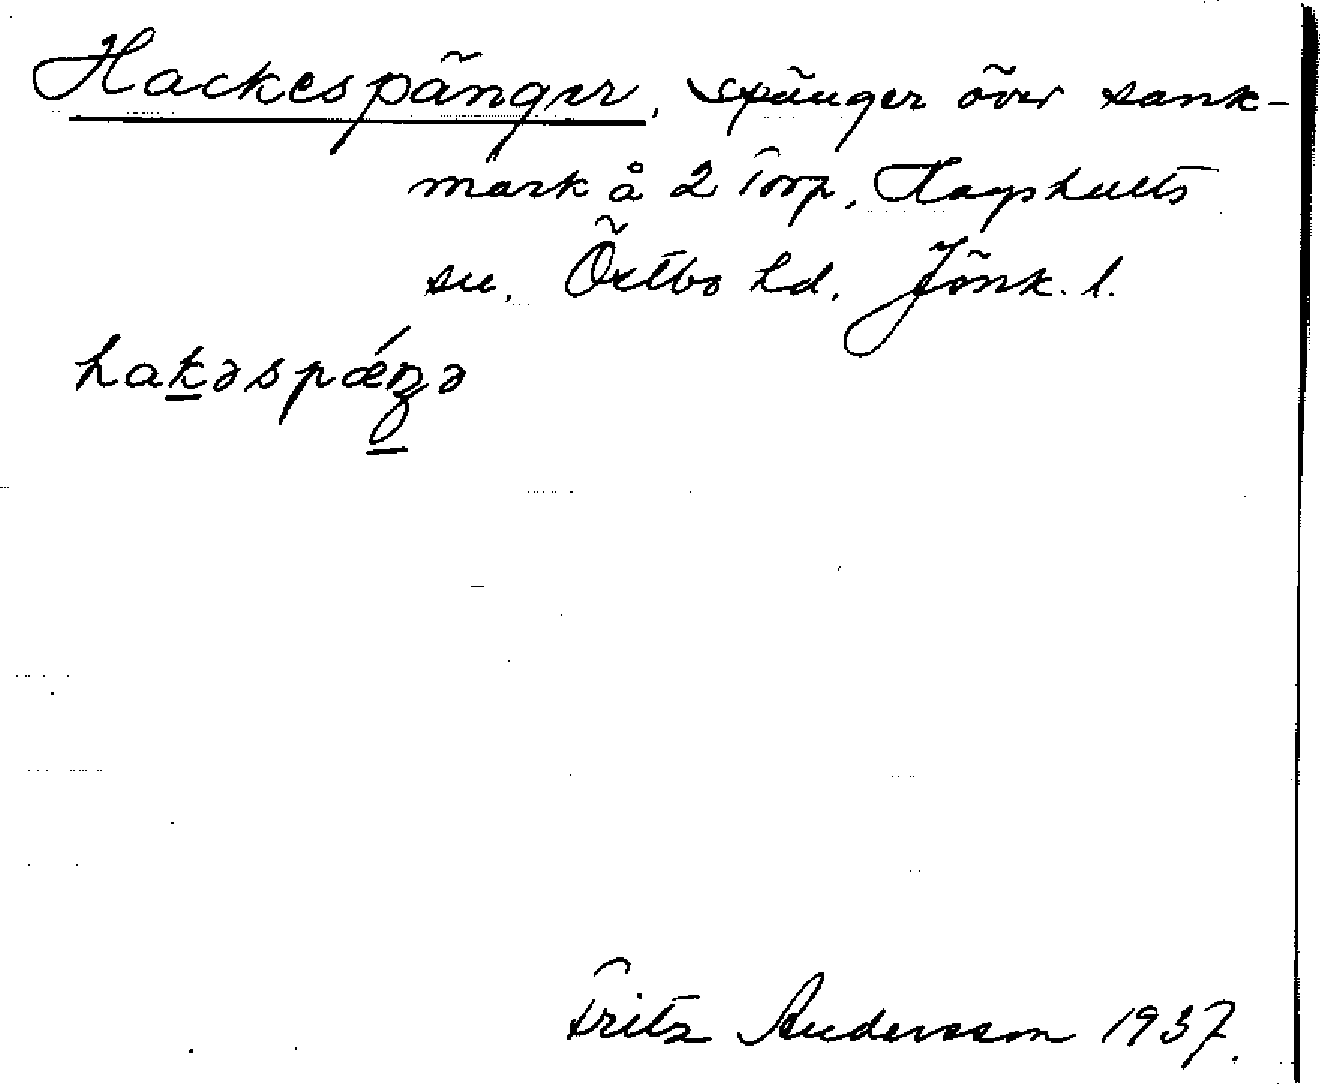 Hackespänger, spänger över sank-
mark å 2 Torp, Hagshults
sn. Östbo hd. Jönk. l.
hakəspǽŋə
Fritz Andersson 1937.